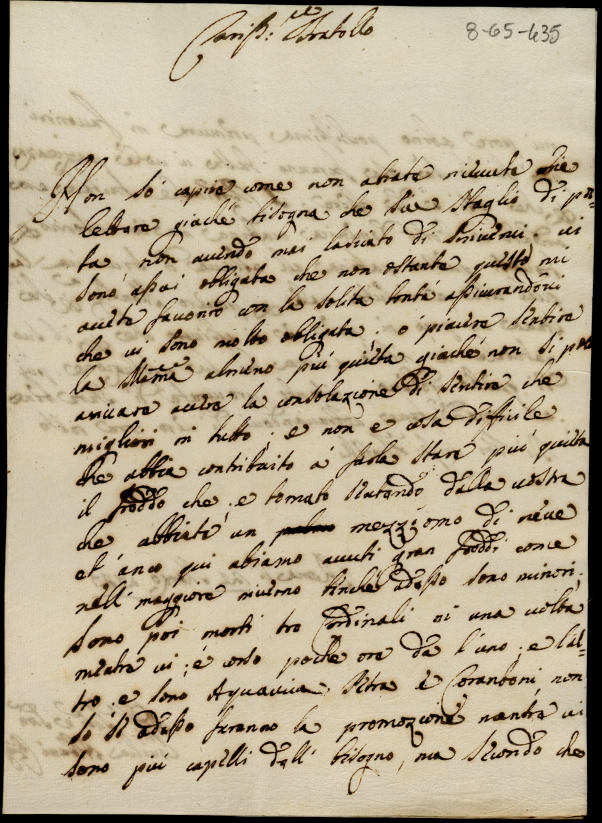 8-65-435
Cariss: Fratello
Non so capire come non abiate riceuta mie
lettere giache bisogna che sia sbaglio di pos=
ta non avendo mai lasciato di scrivervi. vi
sono assai obligata che non ostante questo mi
avete favorito con la solita bontà assicurandovi
che vi sono molto obligata. ò piacere sentire
la Mamà almeno più quieta giache non si può
arivare avere la consolazione di sentire che
migliori in tutto; e non è cosa difficile
che abbia contribuito à farla stare più quieta
il freddo che è tornato stando dalla vostra
che abbiate un mezz'omo di neve
et anco qui abiamo avuti gran freddi come
nell maggiore inverno benche adesso sono minori;
sono poi morti tre Cardinali in una volta
mentre vi è corso poche ore da l'uno, e l'al=
tro e sono Aquaviva Petra e Coranboni, non
so se adesso faranno la promozione mentre vi
sono più capelli dell bisogno, ma secondo che